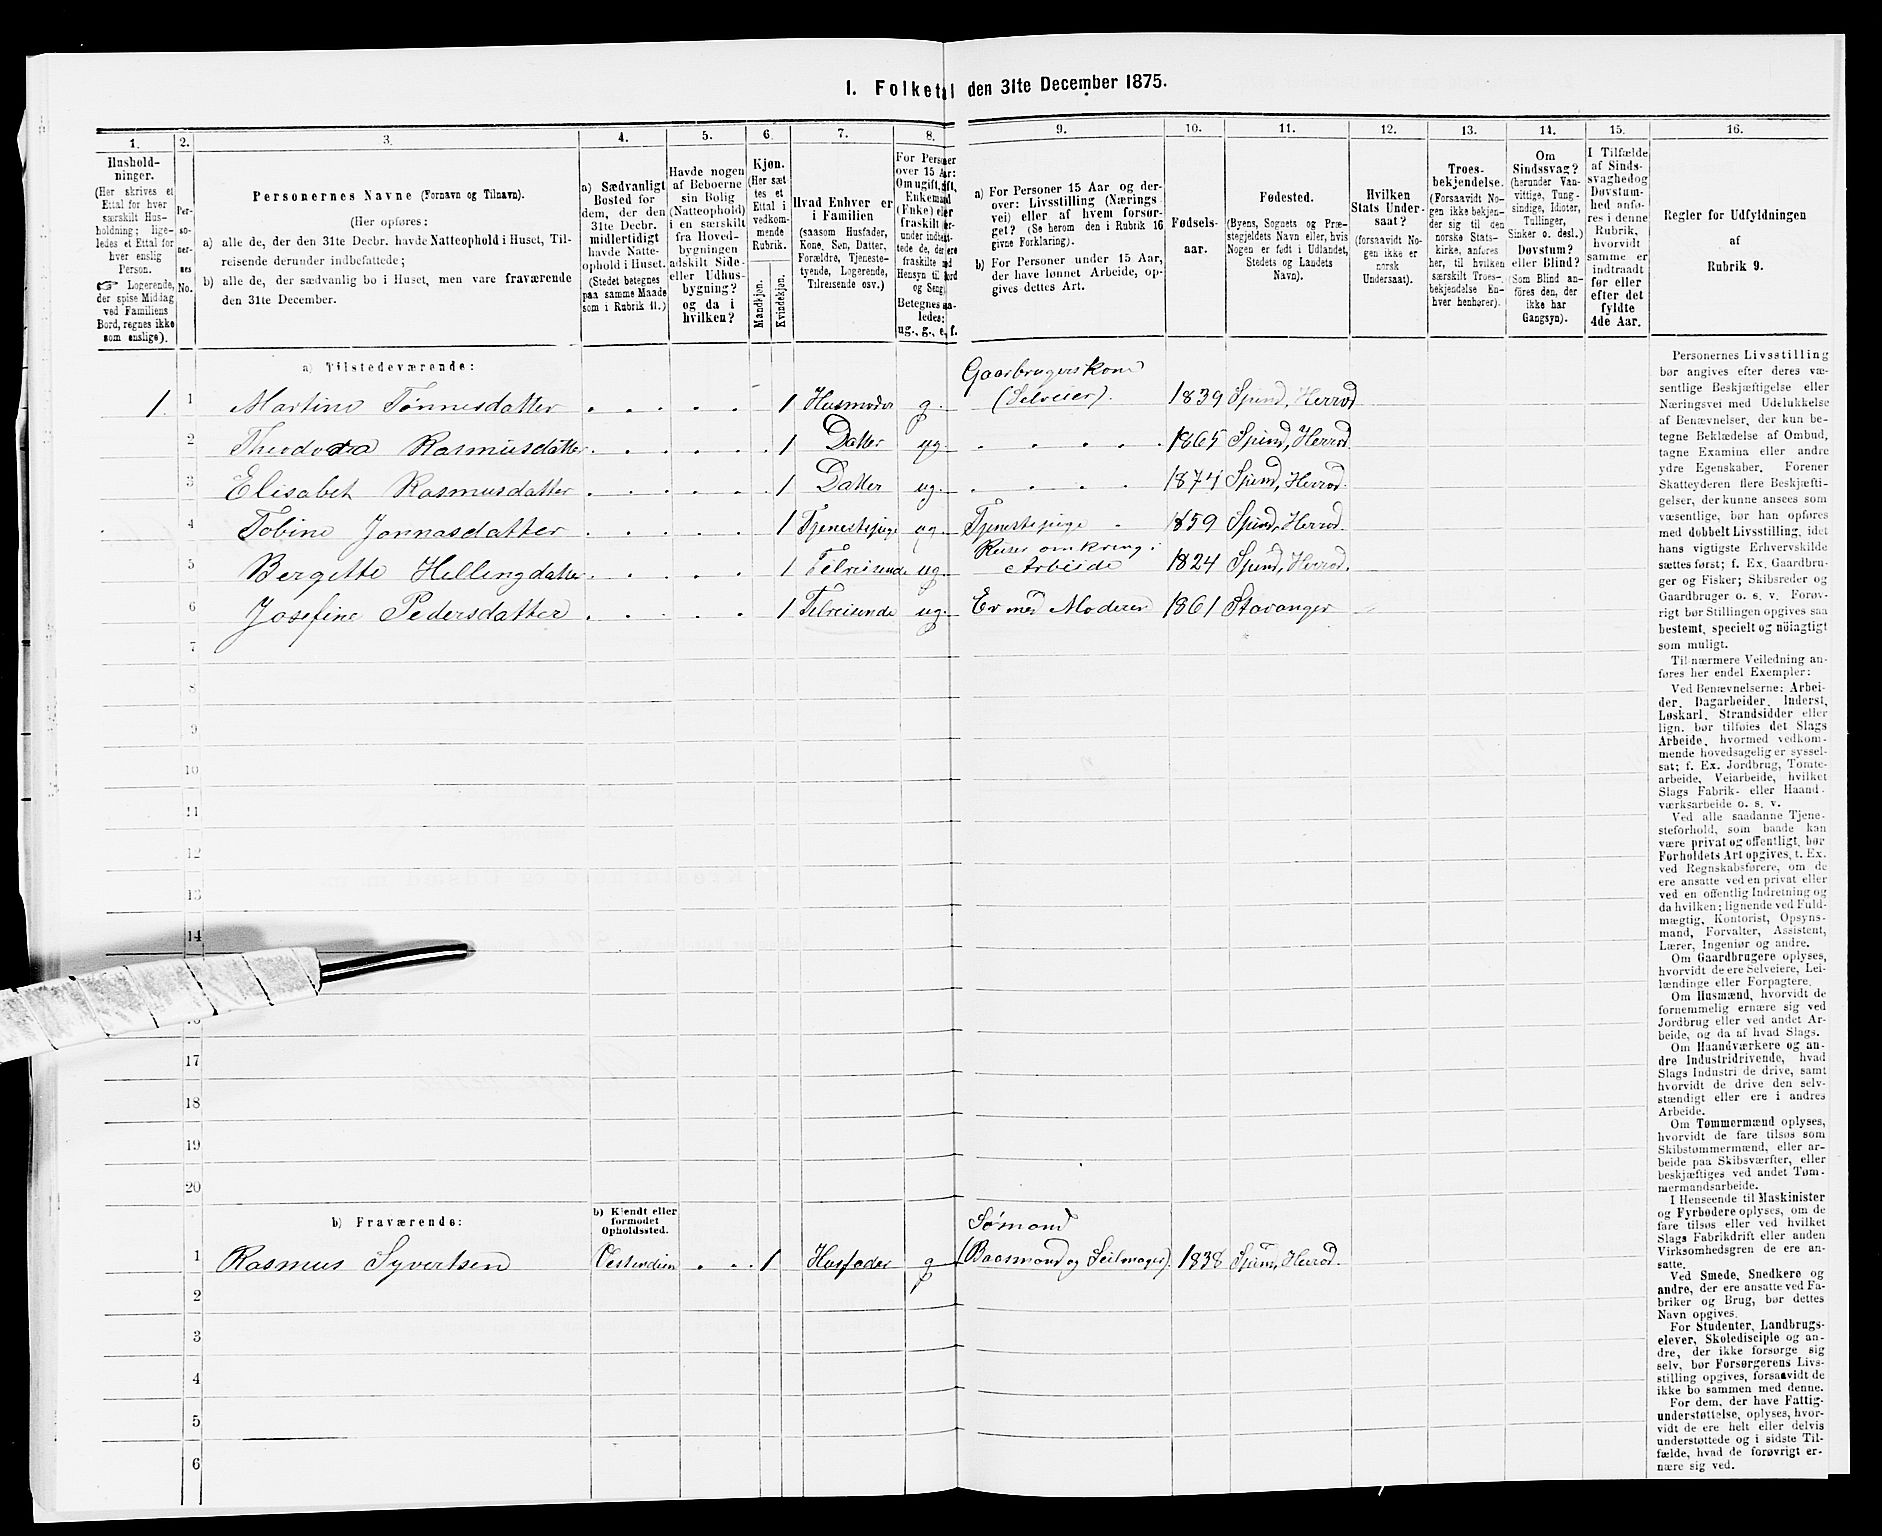 I. Folketal den 31te December 1875.
1. 2. 3. 4. 5. 6. 7. 8. 9. 10. 11. 12. 13. 14. 15. 16.
Hushold-
ninger.
(Her skrives et
Ettal for hver
særskilt Hus-
holdning; lige-
ledes et Ettal for
hver enslig
Person.
☞ Logerende,
der spise Middag
ved Familiens
Bord, regnes ikke
som enslige).
Per-
so-
ner-
nes
No.
Personernes Navne (Fornavn og Tilnavn).
(Her opføres:
a) alle de, der den 31te Decbr. havde Natteophold i Huset, Til-
reisende derunder indbefattede;
b) alle de, der sædvanlig bo i Huset, men vare fraværende
den 31te December.
a) Sædvanligt
Bosted for
dem, der den
31te Decbr.
midlertidigt
havde Natte-
ophold i Huset.
(Stedet betegnes
paa samme Maade
som i Rubrik 11.)
Havde nogen
af Beboerne
sin Bolig
(Natteophold)
i en særskilt
fra Hoved-
bygningen
adskilt Side-
eller Udhus-
bygning?
og da i
hvilken?
Kjøn.
(Her sæt-
tes et
Ettal i
vedkom-
mende
Rubrik.
Mandkjøn.
Kvindekjøn.
Hvad Enhver er
i Familien
(saasom Husfader,
Kone, Søn, Datter,
Forældre, Tjeneste-
tyende, Logerende,
Tilreisende osv.)
For Personer
over 15 Aar:
Om ugift, gift,
Enkemand
(Enke) eller
fraskilt
Betegnes saa-
ledes:
ug., g., e., f.
a) For Personer 15 Aar og der-
over: Livsstilling (Nærings-
vei) eller af hvem forsør-
get? (Se herom den i Rubrik 16
givne Forklaring).
b) For Personer under 15 Aar,
der have lønnet Arbeide, op-
gives dettes Art.
Fødsels-
aar.
Fødested.
(Byens, Sognets og Præ-
stegjeldets Navn eller, hvis
Nogen er født i Udlandet,
Stedets og Landets
Navn).
Hvilken
Stats Under-
saat?
(forsaavidt No-
gen ikke er
norsk
Undersaat).
Troes-
bekjendelse.
(Forsaavidt No-
gen ikke bekjen-
der sig til den
norske Stats-
kirke, anføres
her, til hvilken
særskilt Troes-
bekjendelse En-
hver henhører).
Om
Sindssvag?
(herunder Van-
vittige, Tung-
sindige, Idioter,
Tullinger,
Sinker o. desl.)
Døvstum?
eller Blind?
(Som Blind an-
føres den, der
ikke har
Gangsyn).
I Tilfælde
af Sinds-
svaghed og
Døvstum-
hed anfø-
res i denne
Rubrik,
hvorvidt
samme er
indtraadt
før eller
efter det
fyldte
4de Aar.
Regler for Udfyldningen
af
Rubrik 9.
a) Tilstedeværende:
Gaarbrugerskone
1. 1 Martine Tønnesdatter 1 Husmoder g. (Selveier). 1839 Spind, Herrod
2 Theodora Rasmusdatter 1 Datter ug. 1865 Spind, Herrod.
3 Elisabet Rasmusdatter 1 Datter ug. 1874 Spind, Herrod.
4 Tobine Jonnasdatter 1 Tjenestepige ug. Tjenestepige 1859 Spind, Herrod.
Reiser omkring i
5 Bergitte Hellingdatter 1 Tilreisende ug. Arbeide 1824 Spind, Herrod.
6 Josefine Pedersdatter 1 Tilreisende ug. Er med Moderen 1861 Stavanger
7
8
9
10
11
12
13
14
17
18
19
20
b) Fraværende:
b) Kjendt eller
formodet
Opholdssted.
Sømand
1 Rasmus Syvertsen Vestindien 1 Husfader g (Baasmand og Seilmager). 1838 Spind, Herrod.
2
3
4
5
6
Personernes Livsstilling
bør angives efter deres væ-
sentlige Beskjæftigelse eller
Næringsvei med Udelukkelse
af Benævnelser, der kun be-
tegne Beklædelse af Ombud,
tagne Examina eller andre
ydre Egenskaber. Forener
Skatteyderen flere Beskjæfti-
gelser, der kunne ansees som
væsentlige, bør han opføres
med dobbelt Livsstilling, idet
hans vigtigste Erhvervskilde
sættes først; f. Ex. Gaardbru-
ger og Fisker; Skibsreder og
Gaardbruger o. s. v. Forøv-
rigt bør Stillingen opgives saa
bestemt, specielt og nöiagtigt
som muligt.
Til nærmere Veiledning an-
føres her endel Exempler:
Ved Benævnelserne: Arbei-
der, Dagarbeider, Inderst,
Løskarl, Strandsidder eller
lign. bør tilføies det Slags
Arbeide, hvormed vedkom-
mende hovedsagelig er syssel-
sat; f. Ex. Jordbrug, Tomte-
arbeide, Veiarbeide, hvilket
Slags Fabrik- eller Haand-
værksarbeide o. s. v.
Ved alle saadanne Tjene-
steforhold, som baade kan
være privat og offentligt, bør
Forholdets Art opgives, t. Ex.
ved Regnskabsførere, om de
ere ansatte ved en privat eller
ved en offentlig Indretning og
da hvilken; lignende ved Fuld-
mægtig, Kontorist, Opsyns-
mand, Forvalter, Assistent,
Lærer, Ingeniør og andre.
Om Gaardbrugere oplyses,
hvorvidt de ere Selveiere, Lei-
lændinge eller Forpagtere.
Om Husmænd, hvorvidt de
fornemmelig ernære sig ved
Jordbrug eller ved andet Ar-
beide, og da af hvad Slags.
Om Haandværkere og an-
dre Industridrivende, hvad
Slags Industri de drive, samt
hvorvidt de drive den selv-
stændigt eller ere i andres
Arbeide.
Om Tømmermænd oplyses,
hvorvidt de fare tilsøs som
Skibstømmermænd, eller ar-
beide paa Skibsværfter, eller
beskjæftiges ved andet Tøm-
mermandsarbeide.
I Henseende til Maskinister
og Fyrbødere oplyses, om de
fare tilsøs eller ved hvilket
Slags Fabrikdrift eller anden
Virksomhedsgren de ere an-
satte.
Ved Smede, Snedkere og
andre, der ere ansatte ved Fa-
briker og Brug, bør dettes
Navn opgives.
For Studenter, Landbrugs-
elever, Skoledisciple og an-
dre, der ikke forsørge sig
selv, bør Forsørgerens Livs-
stilling opgives, forsaavidt de
ikke bo sammen med denne.
For dem, der have Fattig-
understøttelse, oplyses, hvor-
vidt de ere helt eller delvis
understøttede og i sidste Til-
fælde, hvad de forøvrigt er-
nære sig ved.